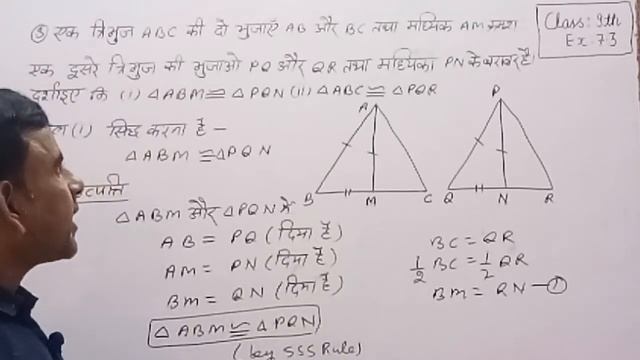 ③ एक त्रिभुज ABC की दो भुजाएँ AB और BC तथा माध्यिका AM क्रमशः
Class: 9th
Ex: 7.3
एक दूसरे त्रिभुज की भुजाओं PQ और QR तथा माध्यिका PN के बराबर है।
दर्शाइए कि (i) △ABM ≅ △PQN (ii) △ABC ≅ △PQR
(i) सिद्ध करना है –
△ABM ≅ △PQN
△ABM और △PQN में
AB = PQ (दिया है)
AM = PN (दिया है)
BM = QN (दिया है)
△ABM ≅ △PQN
(by SSS Rule)
A
B M C
P
Q N R
BC = QR
1/2 BC = 1/2 QR
BM = QN —①